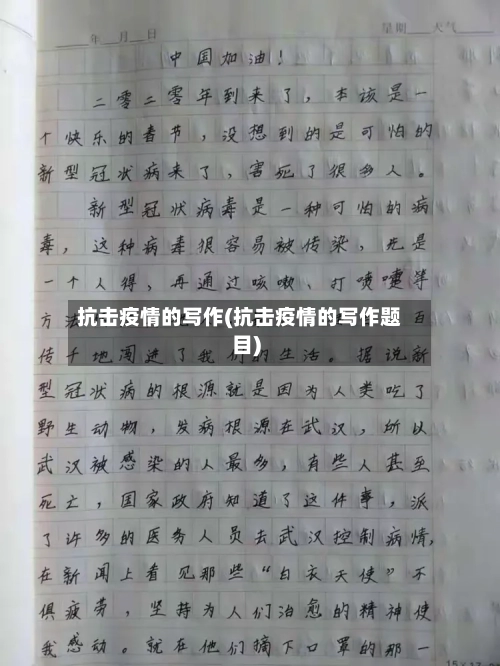 年 月 日 星期 天气
中国加油！
二零二零年到来了，本该是一
个快乐的春节，没想到的是可怕的
新型冠状病来了，害死了很多人。
新型冠状病毒是一种可怕的病
毒，这种病毒很容易被传染，先是
一个人得，再通过咳嗽、打喷嚏等
方法
抗击疫情的写作(抗击疫情的写作题
目)
百
传千地闯进了我们的生活。据说新
型冠状病的根源就是因为人类吃了
野生动物，发病根源在武汉，所以
武汉被感染的人最多，有些人甚至
死亡，国家政府知道了这件事，派
了许多的医务人员去武汉控制病情，
在新闻上看见那些“白衣天使”不
俱疲劳，坚持为人们治愈的精神使
我感动。就在他们摘下口罩的那一